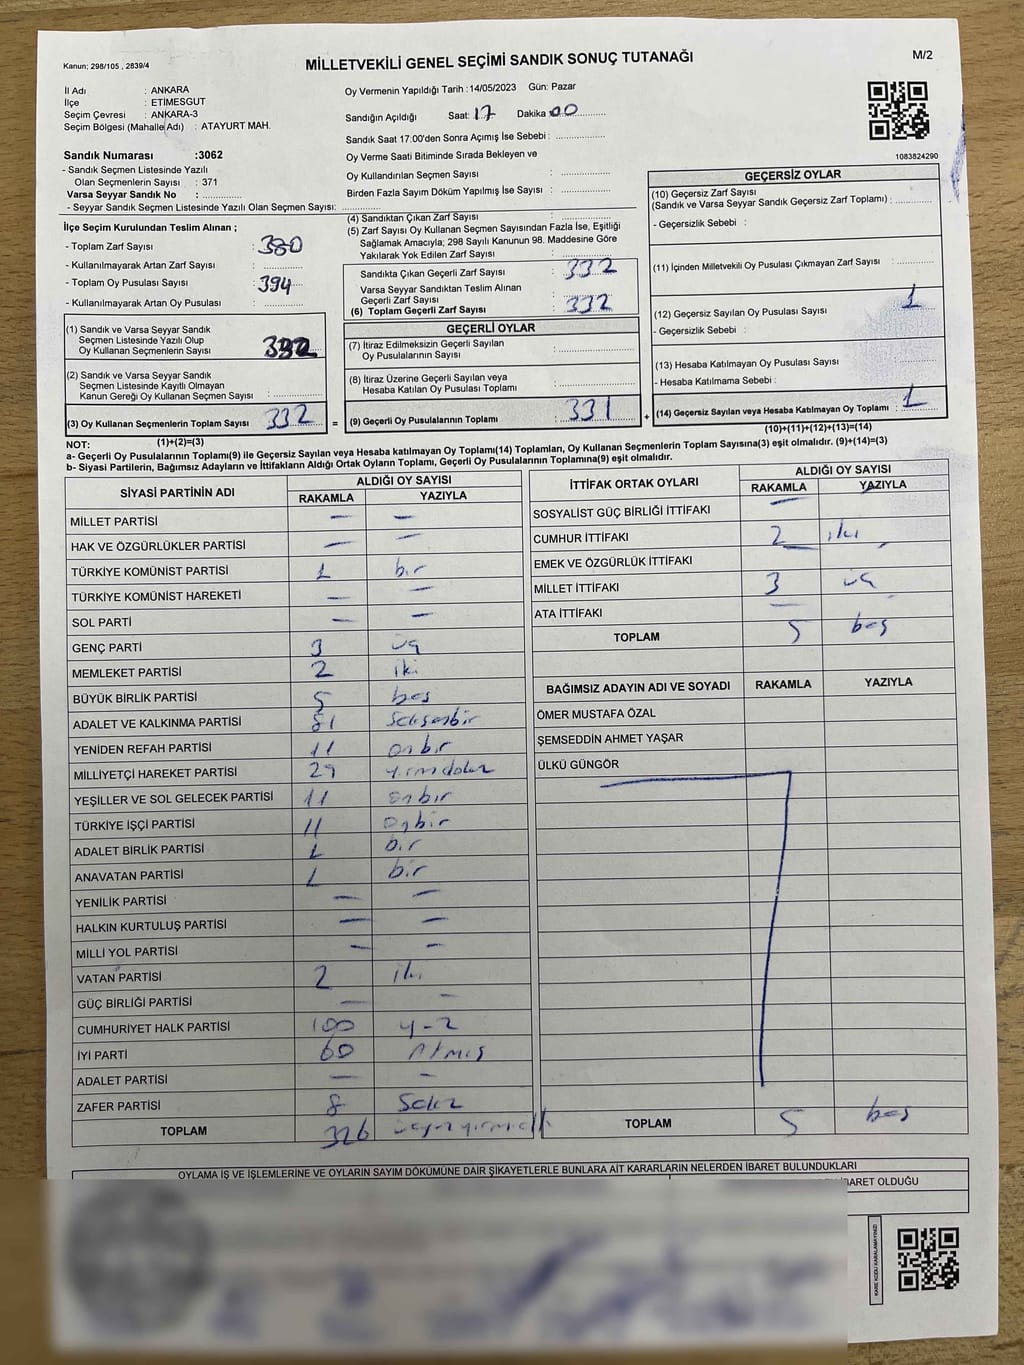 Kanun: 298/105 , 2839/4
MİLLETVEKİLİ GENEL SEÇİMİ SANDIK SONUÇ TUTANAĞI
M/2
İl Adı : ANKARA
İlçe : ETİMESGUT
Seçim Çevresi : ANKARA-3
Seçim Bölgesi (Mahalle Adı) : ATAYURT MAH.
Oy Vermenin Yapıldığı Tarih :14/05/2023 Gün: Pazar
Sandığın Açıldığı Saat: 17 Dakika: 00
Sandık Saat 17.00'den Sonra Açımış İse Sebebi :
Oy Verme Saati Bitiminde Sırada Bekleyen ve
Oy Kullandırılan Seçmen Sayısı :
Birden Fazla Sayım Döküm Yapılmış İse Sayısı :
1083824290
Sandık Numarası :3062
- Sandık Seçmen Listesinde Yazılı
Olan Seçmenlerin Sayısı : 371
Varsa Seyyar Sandık No :
- Seyyar Sandık Seçmen Listesinde Yazılı Olan Seçmen Sayısı:
İlçe Seçim Kurulundan Teslim Alınan ;
- Toplam Zarf Sayısı : 380
- Kullanılmayarak Artan Zarf Sayısı :
- Toplam Oy Pusulası Sayısı : 394
- Kullanılmayarak Artan Oy Pusulası :
(1) Sandık ve Varsa Seyyar Sandık
Seçmen Listesinde Yazılı Olup
Oy Kullanan Seçmenlerin Sayısı : 332
(2) Sandık ve Varsa Seyyar Sandık
Seçmen Listesinde Kayıtlı Olmayan
Kanun Gereği Oy Kullanan Seçmen Sayısı :
(3) Oy Kullanan Seçmenlerin Toplam Sayısı : 332 =
(1)+(2)=(3)
(4) Sandıktan Çıkan Zarf Sayısı :
(5) Zarf Sayısı Oy Kullanan Seçmen Sayısından Fazla İse, Eşitliği
Sağlamak Amacıyla; 298 Sayılı Kanunun 98. Maddesine Göre
Yakılarak Yok Edilen Zarf Sayısı :
Sandıkta Çıkan Geçerli Zarf Sayısı : 332
Varsa Seyyar Sandıktan Teslim Alınan
Geçerli Zarf Sayısı :
(6) Toplam Geçerli Zarf Sayısı : 332
GEÇERLİ OYLAR
(7) İtiraz Edilmeksizin Geçerli Sayılan
Oy Pusulalarının Sayısı :
(8) İtiraz Üzerine Geçerli Sayılan veya
Hesaba Katılan Oy Pusulası Toplamı :
(9) Geçerli Oy Pusulalarının Toplamı : 331 +
GEÇERSİZ OYLAR
(10) Geçersiz Zarf Sayısı
(Sandık ve Varsa Seyyar Sandık Geçersiz Zarf Toplamı) :
- Geçersizlik Sebebi :
(11) İçinden Milletvekili Oy Pusulası Çıkmayan Zarf Sayısı :
(12) Geçersiz Sayılan Oy Pusulası Sayısı : 1
- Geçersizlik Sebebi :
(13) Hesaba Katılmayan Oy Pusulası Sayısı :
- Hesaba Katılmama Sebebi :
(14) Geçersiz Sayılan veya Hesaba Katılmayan Oy Toplamı : 1
(10)+(11)+(12)+(13)=(14)
NOT:
a- Geçerli Oy Pusulalarının Toplamı(9) ile Geçersiz Sayılan veya Hesaba katılmayan Oy Toplamı(14) Toplamları, Oy Kullanan Seçmenlerin Toplam Sayısına(3) eşit olmalıdır. (9)+(14)=(3)
b- Siyasi Partilerin, Bağımsız Adayların ve İttifakların Aldığı Ortak Oyların Toplamı, Geçerli Oy Pusulalarının Toplamına(9) eşit olmalıdır.
SİYASİ PARTİNİN ADI ALDIĞI OY SAYISI
RAKAMLA YAZIYLA
MİLLET PARTİSİ — —
HAK VE ÖZGÜRLÜKLER PARTİSİ — —
TÜRKİYE KOMÜNİST PARTİSİ 1 bir
TÜRKİYE KOMÜNİST HAREKETİ — —
SOL PARTİ — —
GENÇ PARTİ 3 üç
MEMLEKET PARTİSİ 2 iki
BÜYÜK BİRLİK PARTİSİ 5 beş
ADALET VE KALKINMA PARTİSİ 81 seksenbir
YENİDEN REFAH PARTİSİ 11 onbir
MİLLİYETÇİ HAREKET PARTİSİ 29 yirmidokuz
YEŞİLLER VE SOL GELECEK PARTİSİ 11 onbir
TÜRKİYE İŞÇİ PARTİSİ 11 onbir
ADALET BİRLİK PARTİSİ 1 bir
ANAVATAN PARTİSİ 1 bir
YENİLİK PARTİSİ — —
HALKIN KURTULUŞ PARTİSİ — —
MİLLİ YOL PARTİSİ — —
VATAN PARTİSİ 2 iki
GÜÇ BİRLİĞİ PARTİSİ — —
CUMHURİYET HALK PARTİSİ 100 yüz
İYİ PARTİ 60 Atmış
ADALET PARTİSİ — —
ZAFER PARTİSİ 8 Sekiz
TOPLAM 326 üçyüzyirmialtı
İTTİFAK ORTAK OYLARI ALDIĞI OY SAYISI
RAKAMLA YAZIYLA
SOSYALİST GÜÇ BİRLİĞİ İTTİFAKI —
CUMHUR İTTİFAKI 2 iki
EMEK VE ÖZGÜRLÜK İTTİFAKI —
MİLLET İTTİFAKI 3 üç
ATA İTTİFAKI —
TOPLAM 5 beş
BAĞIMSIZ ADAYIN ADI VE SOYADI RAKAMLA YAZIYLA
ÖMER MUSTAFA ÖZAL
ŞEMSEDDİN AHMET YAŞAR
ÜLKÜ GÜNGÖR
TOPLAM 5 beş
OYLAMA İŞ VE İŞLEMLERİNE VE OYLARIN SAYIM DÖKÜMÜNE DAİR ŞİKAYETLERLE BUNLARA AİT KARARLARIN NELERDEN İBARET BULUNDUKLARI
İBARET OLDUĞU
KARE KODU KARALAMAYINIZ!